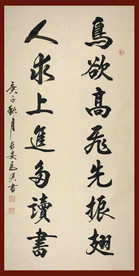 鳥欲高飛先振翅
人求上進多讀書
庚子秋月